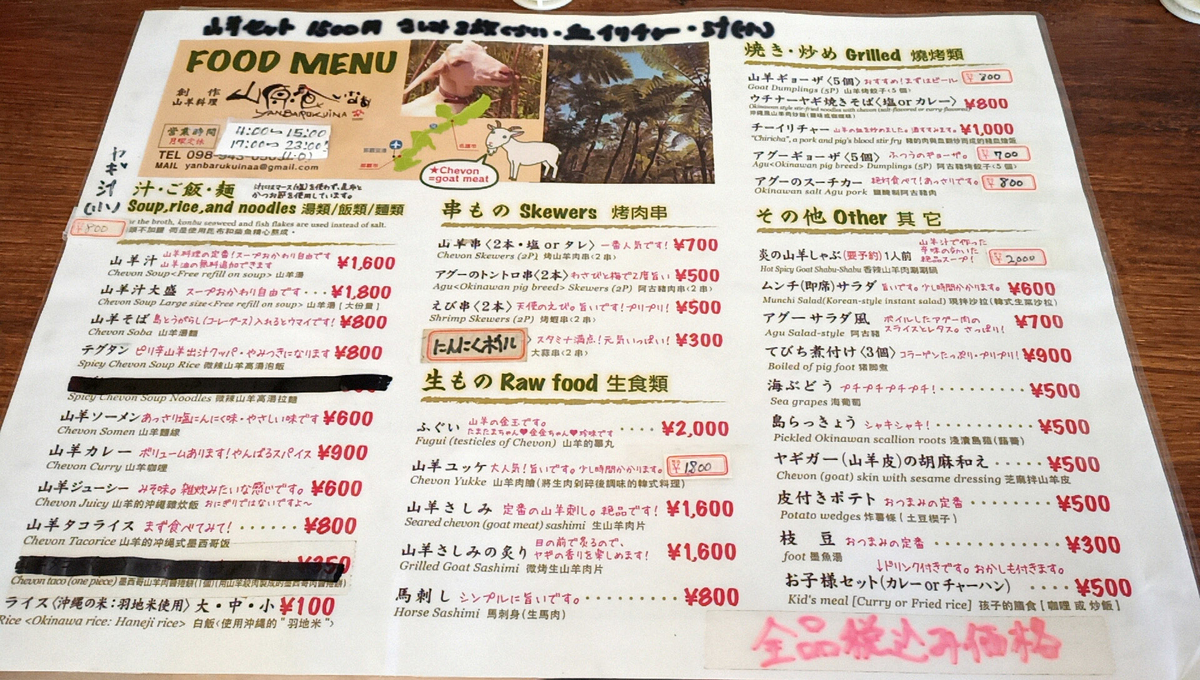 山羊セット 1500円
FOOD MENU
創作
山羊料理
山原喰いなぁ
YANBARUKUINA
営業時間
月曜定休
11:00〜15:00
17:00〜23:00
(L.O)
TEL 098-943-0
MAIL yanbarukuinaa@gmail.com
★Chevon
=goat meat
ヤギ汁(小)
¥800
汁・ご飯・麺
汁にはマース(塩)を使わず、昆布と
かつお節を使用しています。
Soup,rice,and noodles 湯類/飯類/麵類
the broth, konbu seaweed and fish flakes are used instead of salt.
山羊汁 山羊料理の定番!スープおかわり自由です
山羊油の無料追加できます ¥1,600
Chevon Soup<Free refill on soup> 山羊湯
山羊汁大盛 スープおかわり自由です・・・¥1,800
Chevon Soup Large size<Free refill on soup> 山羊湯〔大份量〕
山羊そば 島とうがらし(コーレーグース)入れるとウマイです! ¥800
Chevon Soba 山羊湯麵
テグタン ピリ辛山羊出汁クッパ・やみつきになります ¥800
Spicy Chevon Soup Rice 微辣山羊高湯泡飯
Spicy Chevon Soup Noodles 微辣山羊高湯拉麵
山羊ソーメン あっさり塩にんにく味・やさしい味です ¥600
Chevon Somen 山羊麵線
山羊カレー ボリュームあります!やんばるスパイス ¥900
Chevon Curry 山羊咖哩
山羊ジューシー みそ味。雑炊みたいな感じです。 ¥600
Chevon Juicy 山羊的沖縄雜炊飯 おにぎりではないですよ〜
山羊タコライス まず食べてみて!・・・・・・ ¥800
Chevon Tacorice 山羊的沖縄式墨西哥飯
¥350
Chevon taco (one piece)
ライス〈沖縄の米:羽地米使用〉大・中・小 ¥100
Rice <Okinawa rice: Haneji rice> 白飯〈使用沖縄的"羽地米"〉
串もの Skewers 烤肉串
山羊串〈2本・塩 or タレ〉一番人気です! ¥700
Chevon Skewers (2P) 山羊串〈2串〉
アグーのトントロ串〈2本〉わさびと梅で2度旨い ¥500
Agu<Okinawan pig breed> Skewers (2P) 阿古豬肉串〈2串〉
えび串〈2本〉天使のえび。旨いです!プリプリ! ¥500
Shrimp Skewers (2P) 烤蝦串〈2串〉
にんにくホイル スタミナ満点!元気いっぱい! ¥300
大蒜串〈2串〉
生もの Raw food 生食類
ふぐい 山羊の金玉です。
たまたまちゃん♥金金ちゃん♥珍味です ・・・・ ¥2,000
Fugui (testicles of Chevon) 山羊的睾丸
山羊ユッケ 大人気!旨いです。少し時間かかります。 ¥1800
Chevon Yukke 山羊肉膾(將生肉剁碎後調味的韓式料理)
山羊さしみ 定番の山羊刺し。絶品です! ¥1,600
Seared chevon (goat meat) sashimi 生山羊肉片
山羊さしみの炙り 目の前で炙るので、
ヤギの香りを楽しめます! ¥1,600
Grilled Goat Sashimi 微烤生山羊肉片
馬刺し シンプルに旨いです。・・・・・・・・・ ¥800
Horse Sashimi 馬刺身(生馬肉)
焼き・炒め Grilled 燒烤類
山羊ギョーザ〈5個〉おすすめ!まずはビール ¥800
Goat Dumplings (5P) 山羊烤餃子〈5個〉
ウチナーヤギ焼きそば〈塩 or カレー〉 ¥800
Okinawan style stir-fried noodles with chevon (salt-flavored or curry flavored)
チーイリチャー 山羊の血を炒めました。滴すすみます。 ¥1,000
"Chiricha", a pork and pig's blood stir fry 豬的肉與血翻炒而成的豬血雜飯
アグーギョーザ〈5個〉ふつうのギョーザ。 ¥700
Agu<Okinawan pig breed>Dumplings (5P) 阿古豬烤餃子〈5個〉
アグーのスーチカー 絶対食べて!あっさりです。 ¥800
Okinawan salt Agu pork 鹽醃制阿古豬肉
その他 Other 其它
炎の山羊しゃぶ(要予約)1人前 山羊汁で作った
辛味のきいた
絶品スープ! ¥2,000
Hot Spicy Goat Shabu-Shabu 香辣山羊肉涮涮鍋
ムンチ(即席)サラダ 旨いです。少し時間かかります。 ¥600
Munchi Salad(Korean-style instant salad) 現拌沙拉(韓式生菜沙拉)
アグーサラダ風 ボイルしたアグー肉の
スライスとレタス。さっぱり! ¥700
Agu Salad-style 阿古豬
てびち煮付け〈3個〉コラーゲンたっぷり・プリプリ! ¥900
Boiled of pig foot 豬脚煮
海ぶどう プチプチプチプチ! ¥500
Sea grapes 海葡萄
島らっきょう シャキシャキ! ¥500
Pickled Okinawan scallion roots 淺漬島蕗(蕗蕎)
ヤギガー(山羊皮)の胡麻和え ¥500
Chevon (goat) skin with sesame dressing 芝麻拌山羊皮
皮付きポテト おつまみの定番・・・・・・・ ¥500
Potato wedges 炸薯條(土豆楔子)
枝豆 おつまみの定番・・・・・・・・・・・ ¥300
foot 墨魚湯
↓ドリンク付きです。おかしも付きます。
お子様セット(カレー or チャーハン) ¥500
Kid's meal [Curry or Fried rice] 孩子的膳食[咖哩 或 炒飯]
全品税込み価格